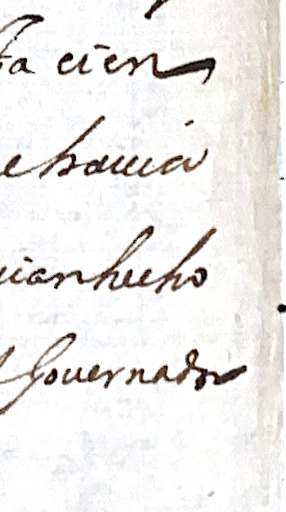 ta cien
e hauia
uian hecho
l Gouernador